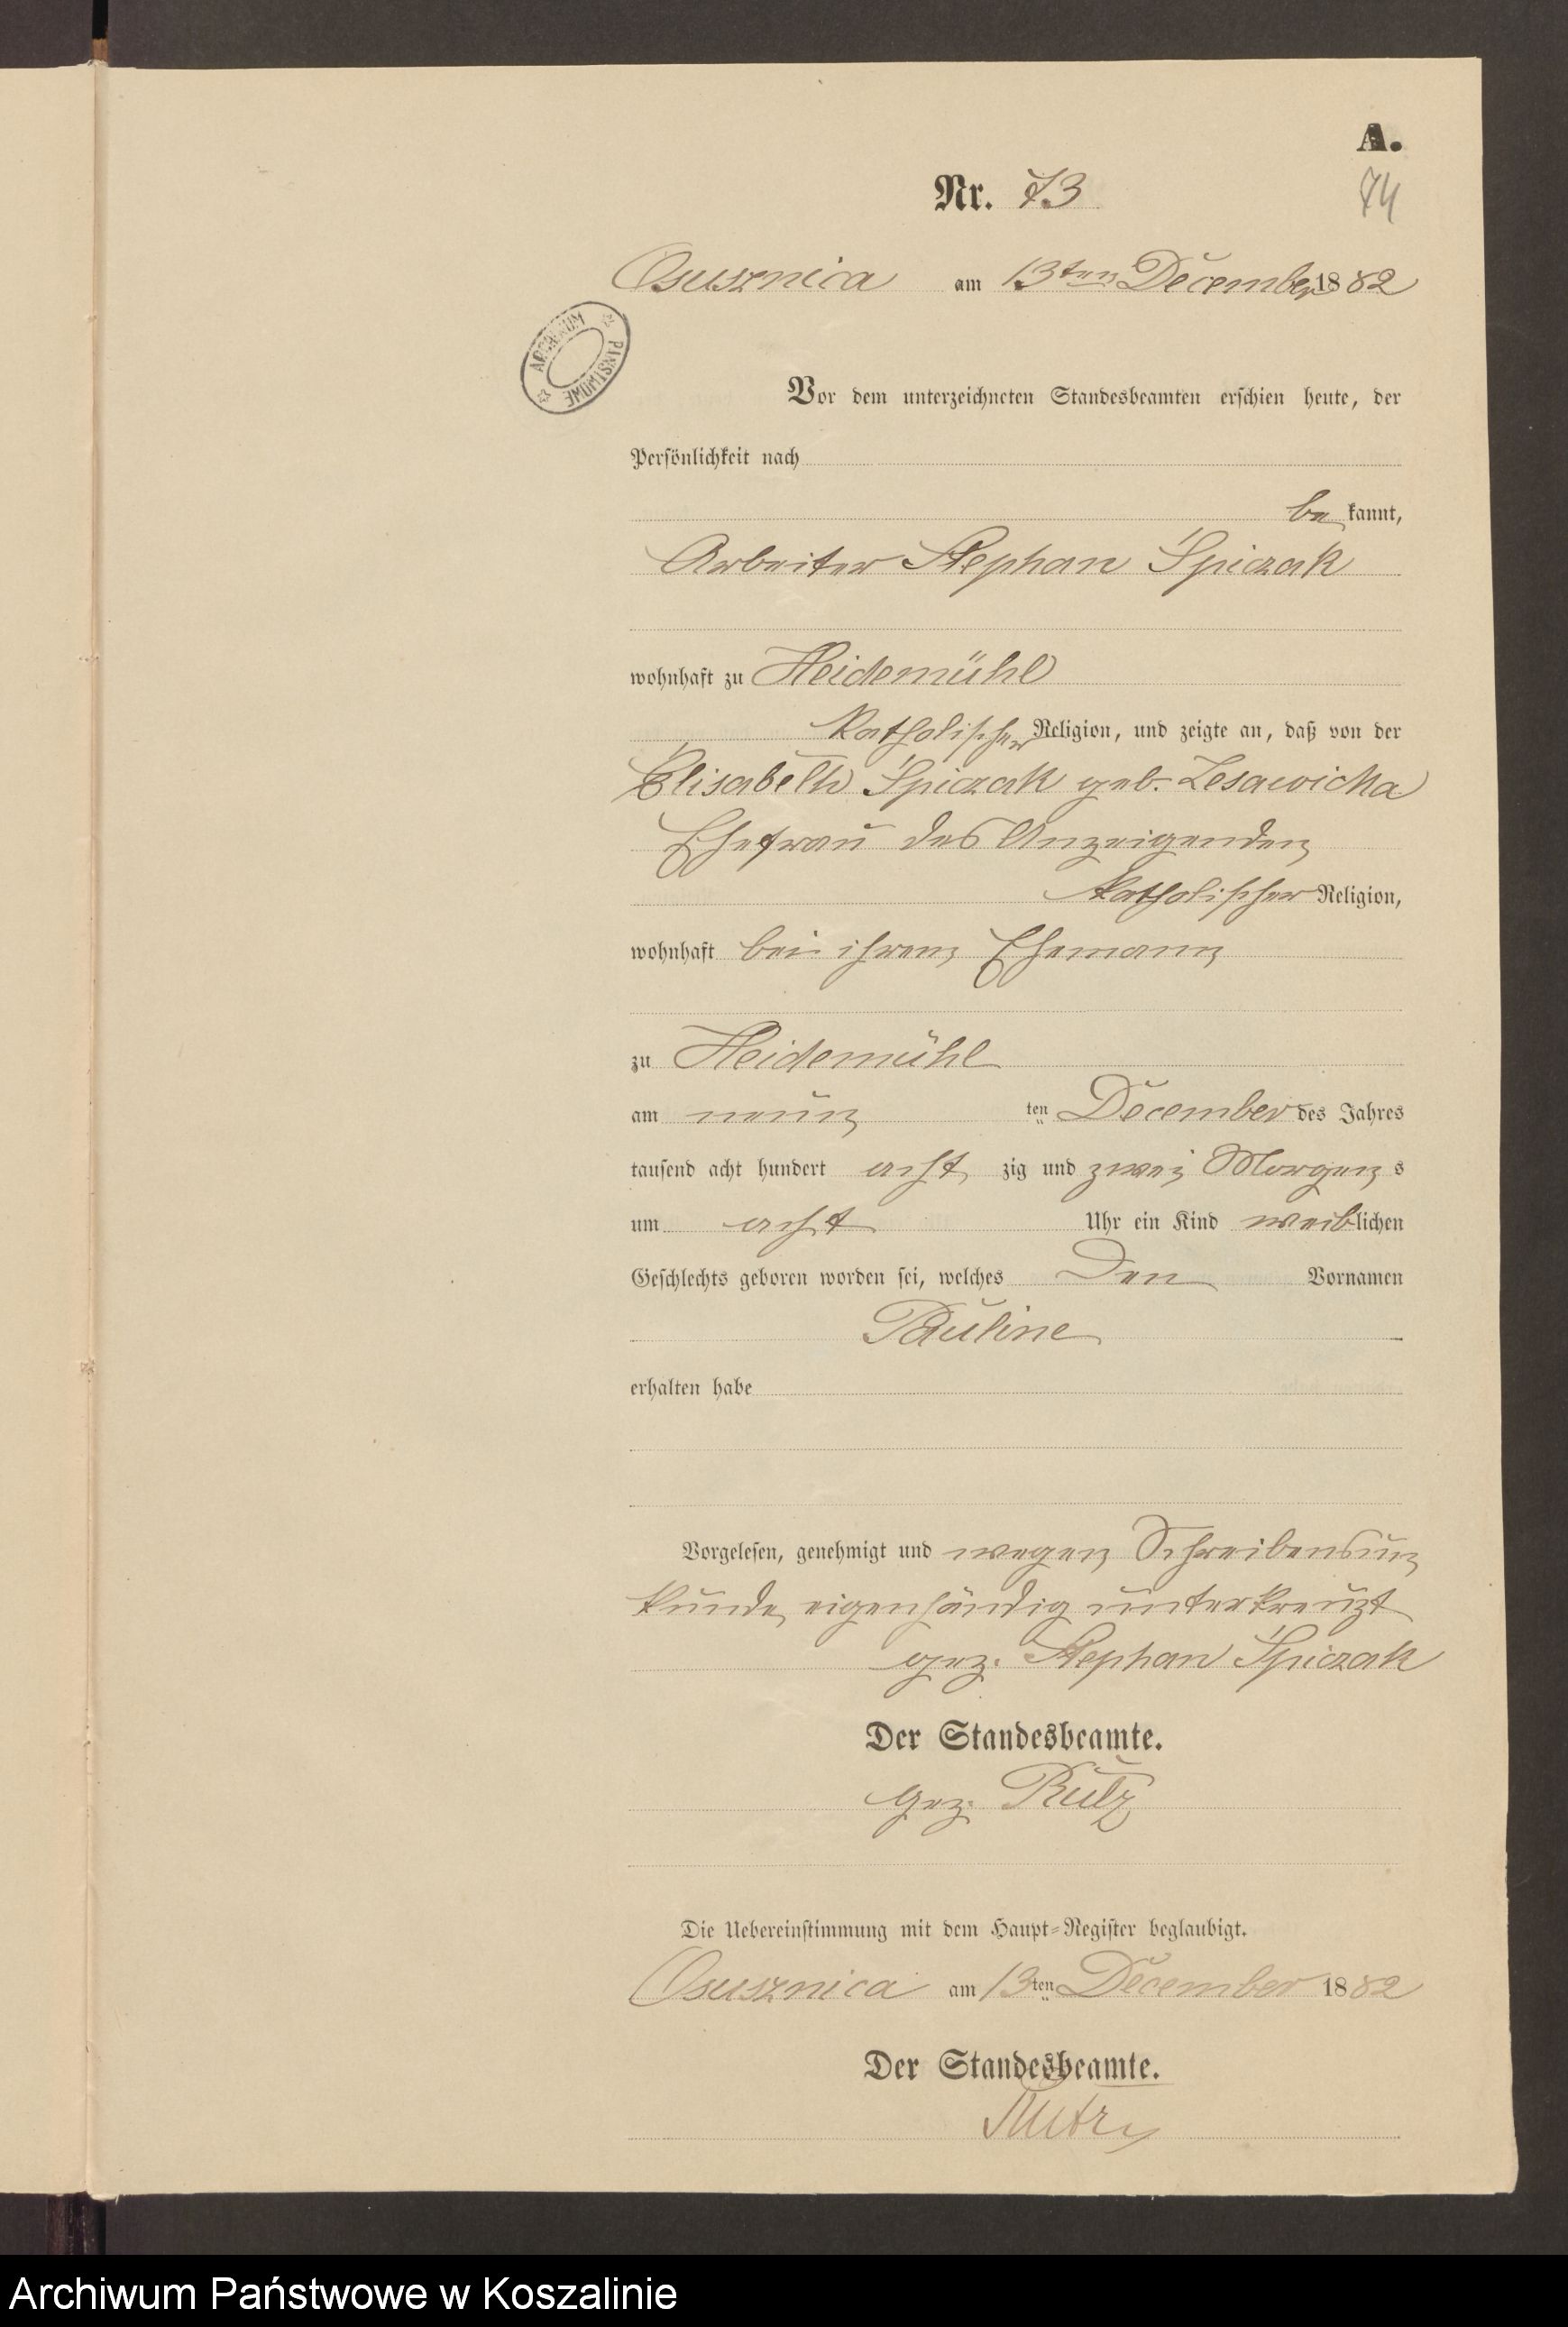 A.
Nr. 73
74
Osusznica am 13ten December 1882
ARCHIWUM PAŃSTWOWE
Vor dem unterzeichneten Standesbeamten erschien heute, der
Persönlichkeit nach
be kannt,
Arbeiter Stephan Śpiczak
wohnhaft zu Heidemühl
katholischer Religion, und zeigte an, daß von der
Elisabeth Śpiczak geb. Lesawicka
Ehefrau des Anzeigenden
katholischer Religion,
wohnhaft bei ihrem Ehemann
zu Heidemühl
am neun ten December des Jahres
tausend acht hundert acht zig und zwei Morgens
um acht Uhr ein Kind weiblichen
Geschlechts geboren worden sei, welches den Vornamen
Pauline
erhalten habe
Vorgelesen, genehmigt und wegen Schreibensun
kunde eigenhändig unterkreuzt
gez. Stephan Śpiczak
Der Standesbeamte.
gez.
Die Uebereinstimmung mit dem Haupt-Register beglaubigt.
Osusznica am 13ten December 1882
Der Standesbeamte.
Archiwum Państwowe w Koszalinie